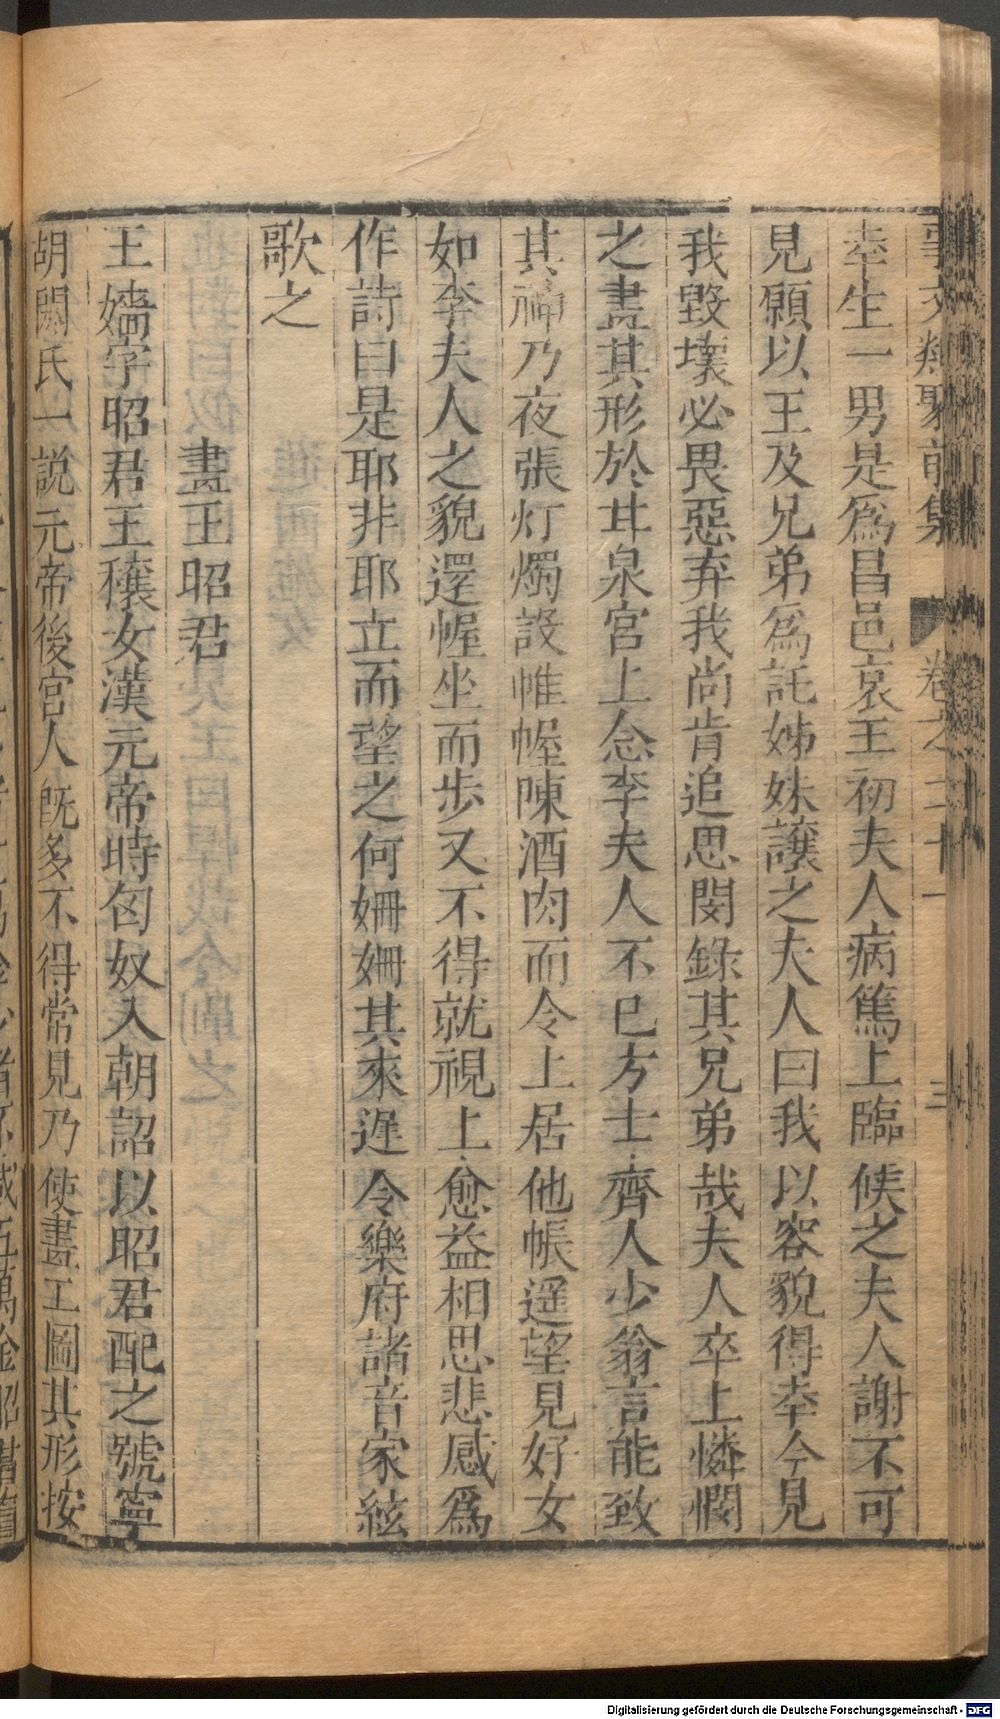 事文類聚前集 卷之二十一 三
幸生一男是爲昌邑哀王初夫人病篤上臨候之夫人謝不可
見願以王及兄弟爲託姊妹讓之夫人曰我以容貌得幸今見
我毀壞必畏惡弃我尚肯追思閔錄其兄弟哉夫人卒上憐憫
之畫其形於甘泉宮上念李夫人不已方士齊人少翁言能致
其神乃夜張灯燭設帷幄陳酒肉而令上居他帳遥望見好女
如李夫人之貌還幄坐而步又不得就視上愈益相思悲感爲
作詩曰是耶非耶立而望之何姍姍其來遲令樂府諸音家絃
歌之
畫王昭君
王嬙字昭君王穰女漢元帝時匈奴入朝詔以昭君配之號寧
胡閼氏一說元帝後宮人既多不得常見乃使畫工圖其形按
Digitalisierung gefördert durch die Deutsche Forschungsgemeinschaft - DFG